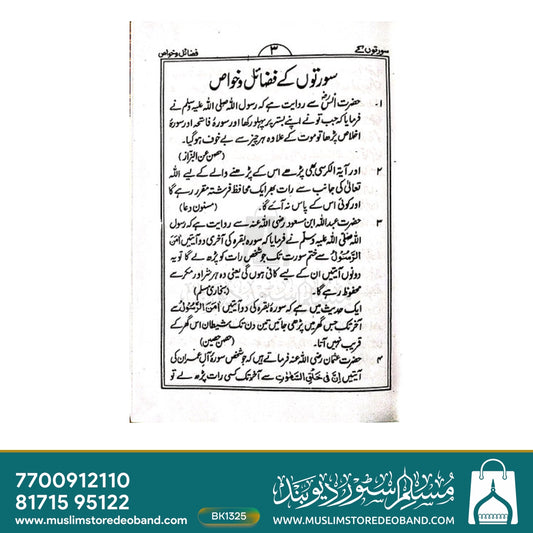 سورتوں کے ۳ فضائل و خواص
سورتوں کے فضائل و خواص
۱- حضرت انسؓ سے روایت ہے کہ رسول اللہ صلی اللہ علیہ وسلم نے
فرمایا کہ جب تو نے اپنے بستر پر پہلو رکھا اور سورۂ فاتحہ اور سورۂ
اخلاص پڑھا تو موت کے علاوہ ہر چیز سے بے خوف ہو گیا۔
(حصن عن البزاز)
۲ اور آیۃ الکرسی بھی پڑھے اس کے پڑھنے والے کے لیے اللہ
تعالیٰ کی جانب سے رات بھر ایک محافظ فرشتہ مقرر رہے گا
اور کوئی اس کے پاس نہ آئے گا۔ (مسنون دعا)
۳ حضرت عبداللہ ابن مسعود رضی اللہ عنہ سے روایت ہے کہ رسول
اللہ صلی اللہ علیہ وسلم نے فرمایا کہ سورہ بقرہ کی آخری دو آیتیں اٰمَنَ
الرَّسُوْلُ سے ختم سورت تک جو شخص رات کو پڑھ لے گا تو یہ
دونوں آیتیں ان کے لیے کافی ہوں گی یعنی وہ ہر شر اور مکر سے
محفوظ رہے گا۔ (بخاری مسلم)
ایک حدیث میں ہے کہ سورۂ بقرہ کی دو آیتیں اٰمَنَ الرَّسُوْلُ سے
آخر تک جس گھر میں پڑھی جائیں تین دن تک شیطان اس گھر کے
قریب نہیں آتا۔ (حصن حصین)
۴ حضرت عثمان رضی اللہ عنہ فرماتے ہیں کہ جو شخص سورۂ آل عمران کی
آیتیں اِنَّ فِیْ خَلْقِ السَّمٰوٰتِ سے آخر تک کسی رات پڑھ لے تو
7700912110
81715 95122
www.muslimstoredeoband.com
BK1325
مسلم سٹور دیوبند
WWW.MUSLIMSTOREDEOBAND.COM